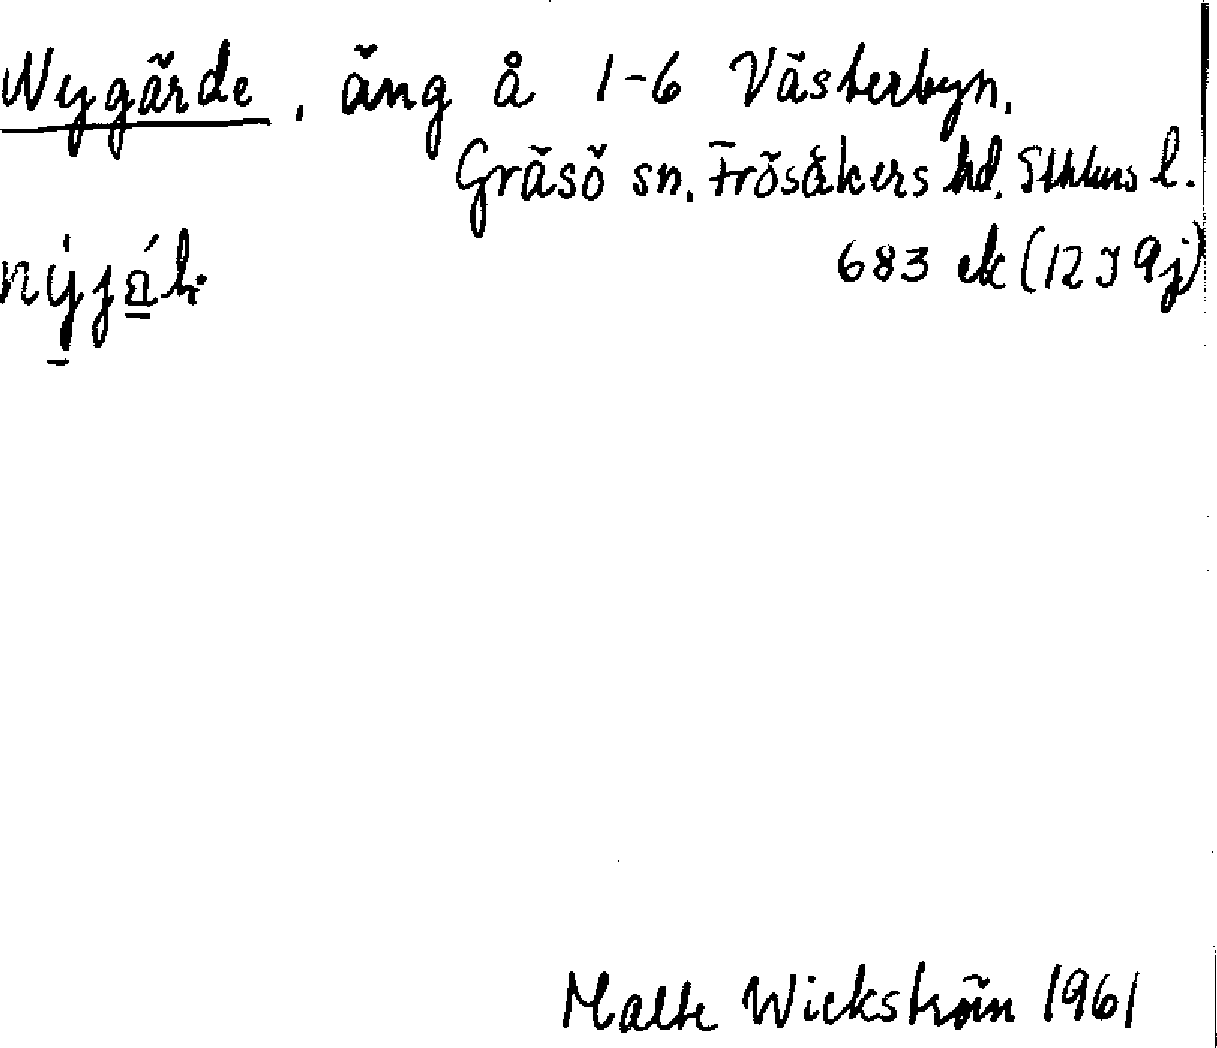 Nygärde, äng å 1-6 Västerbyn.
Gräsö sn. Frösåkers hd. Sthlms l.
683 ek (12 I 9j)
Malte Wickström 1961